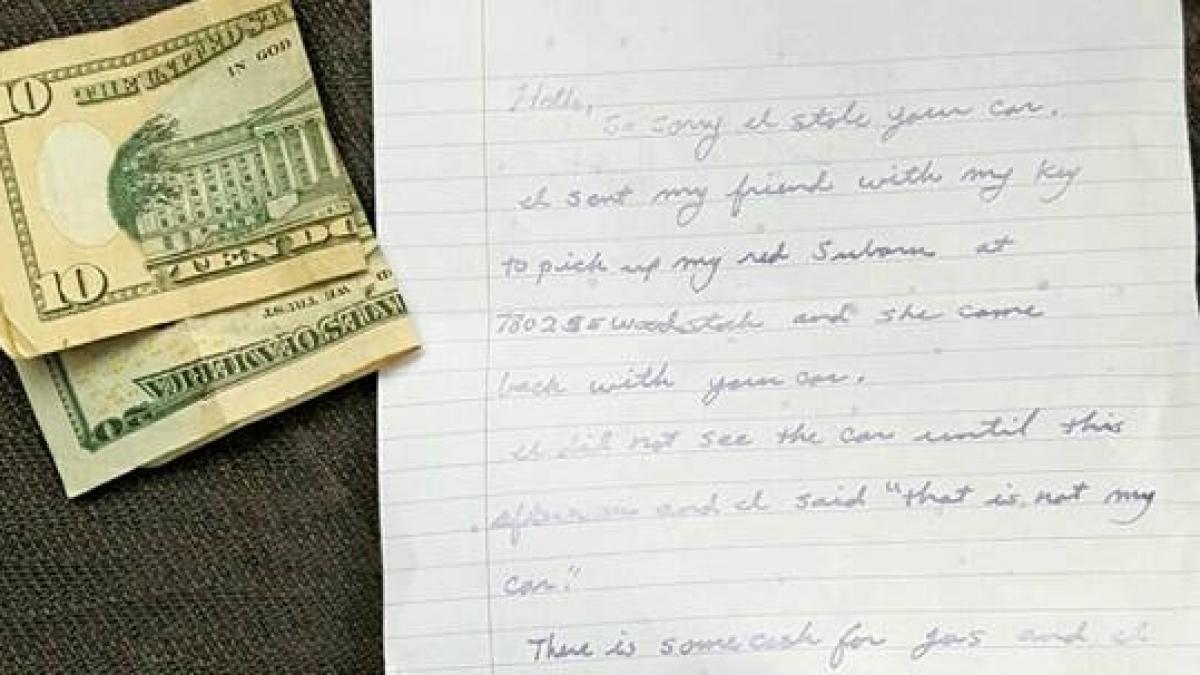 10
THE UNITED ST
IN GOD
10
WE TRUST
TES OF AMERICA
20
Hello,
So sorry I stole your car.
I sent my friend with my key
to pick up my red Subaru at
7802 SE Woodstock and she came
back with your car.
I did not see the car until this
afternoon and I said "that is not my
car."
There is some cash for gas and I